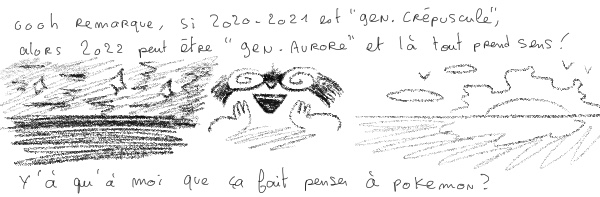 oooh Remarque, si 2020-2021 est "gen. Crépuscule",
alors 2022 peut être "gen. Aurore" et là tout prend sens !
Y'à qu'à moi que ça fait penser à pokemon ?